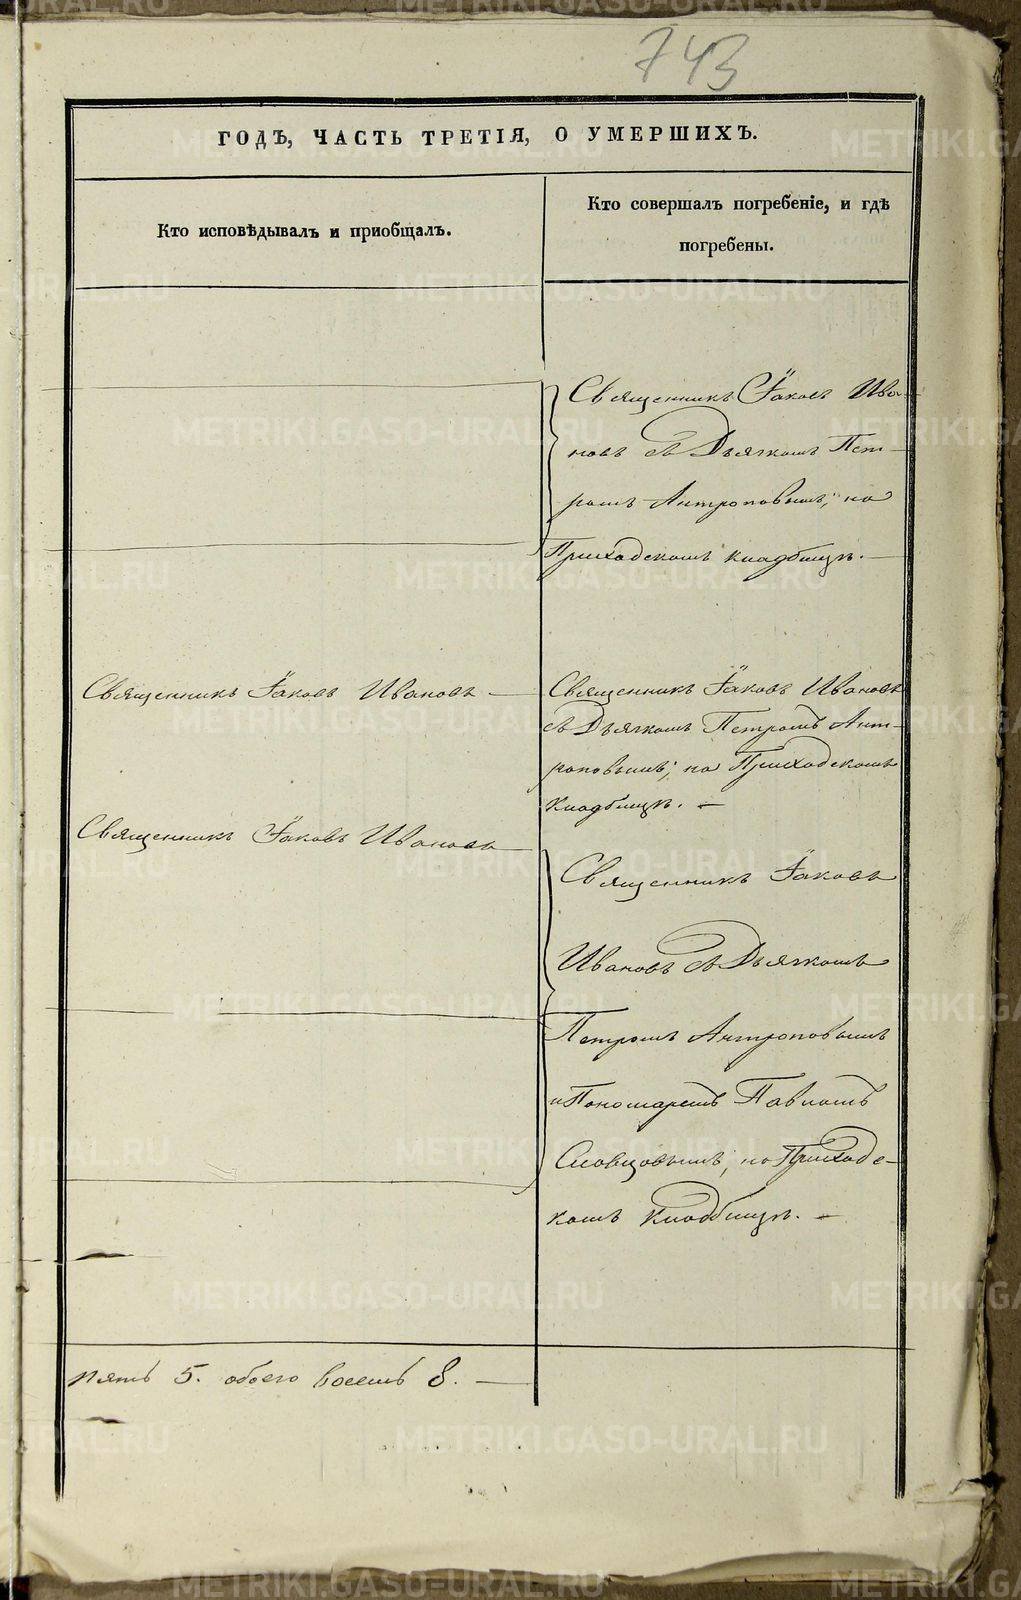 743
ГОДЪ, ЧАСТЬ ТРЕТІЯ, О УМЕРШИХЪ.
Кто исповѣдывалъ и приобщалъ.
Кто совершалъ погребеніе, и гдѣ
погребены.
Священникъ Іаковъ Ива-
новъ съ Дьячкомъ Пет-
ромъ Антроповымъ; на
Приходскомъ кладбищѣ. —
Священникъ Іаковъ Ивановъ —
Священникъ Іаковъ Ивановъ
съ Дьячкомъ Петромъ Ант-
роповымъ; на Приходскомъ
кладбищѣ. —
Священникъ Іаковъ Ивановъ —
Священникъ Іаковъ
Ивановъ съ Дьячкомъ
Петромъ Антроповымъ
и Пономаремъ Павломъ
Словцовымъ; на Приходс-
комъ кладбищѣ. —
пять 5. обоего восемь 8. —
METRIKI.GASO-URAL.RU